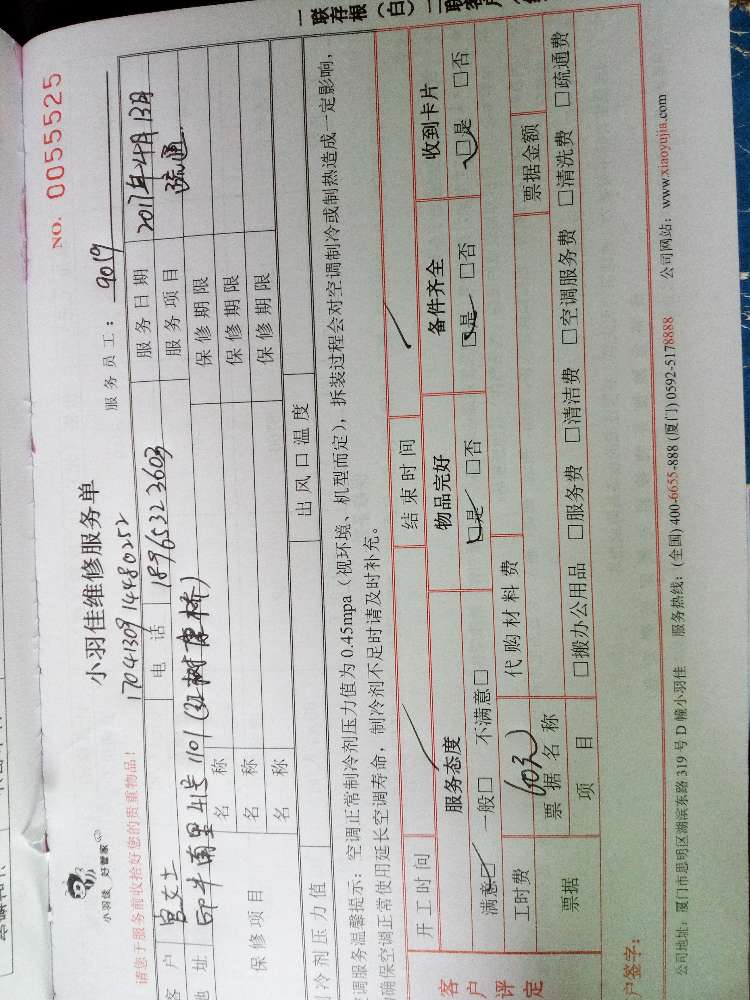 一联存根(白)二联客户(
NO. 0055525
小羽佳 好管家
小羽佳维修服务单
服务员工: 9019
请您于服务前收拾好您的贵重物品!
1704130914480252
客 户
电 话 18965323603
服务日期 2017年4月13日
地 址
服务项目 疏通
保修项目
名 称 保修期限
名 称 保修期限
名 称 保修期限
冷剂压力值 出风口温度
调服务温馨提示:空调正常制冷剂压力值为0.45mpa(视环境、机型而定),拆装过程会对空调制冷或制热造成一定影响,
确保空调正常使用延长空调寿命,制冷剂不足时请及时补充。
开工时间 结束时间
客户评定
服务态度 物品完好 备件齐全 收到卡片
满意□ 一般□ 不满意□ □是 □否 □是 □否 □是 □否
工时费 代购材料费
票据 票据名称 票据金额
项 目 □搬办公用品 □服务费 □清洁费 □空调服务费 □清洗费 □疏通费
户签字:
公司地址:厦门市思明区湖滨东路319号D幢小羽佳 服务热线:(全国)400-6655-888 (厦门)0592-5178888 公司网站:www.xiaoyujia.com